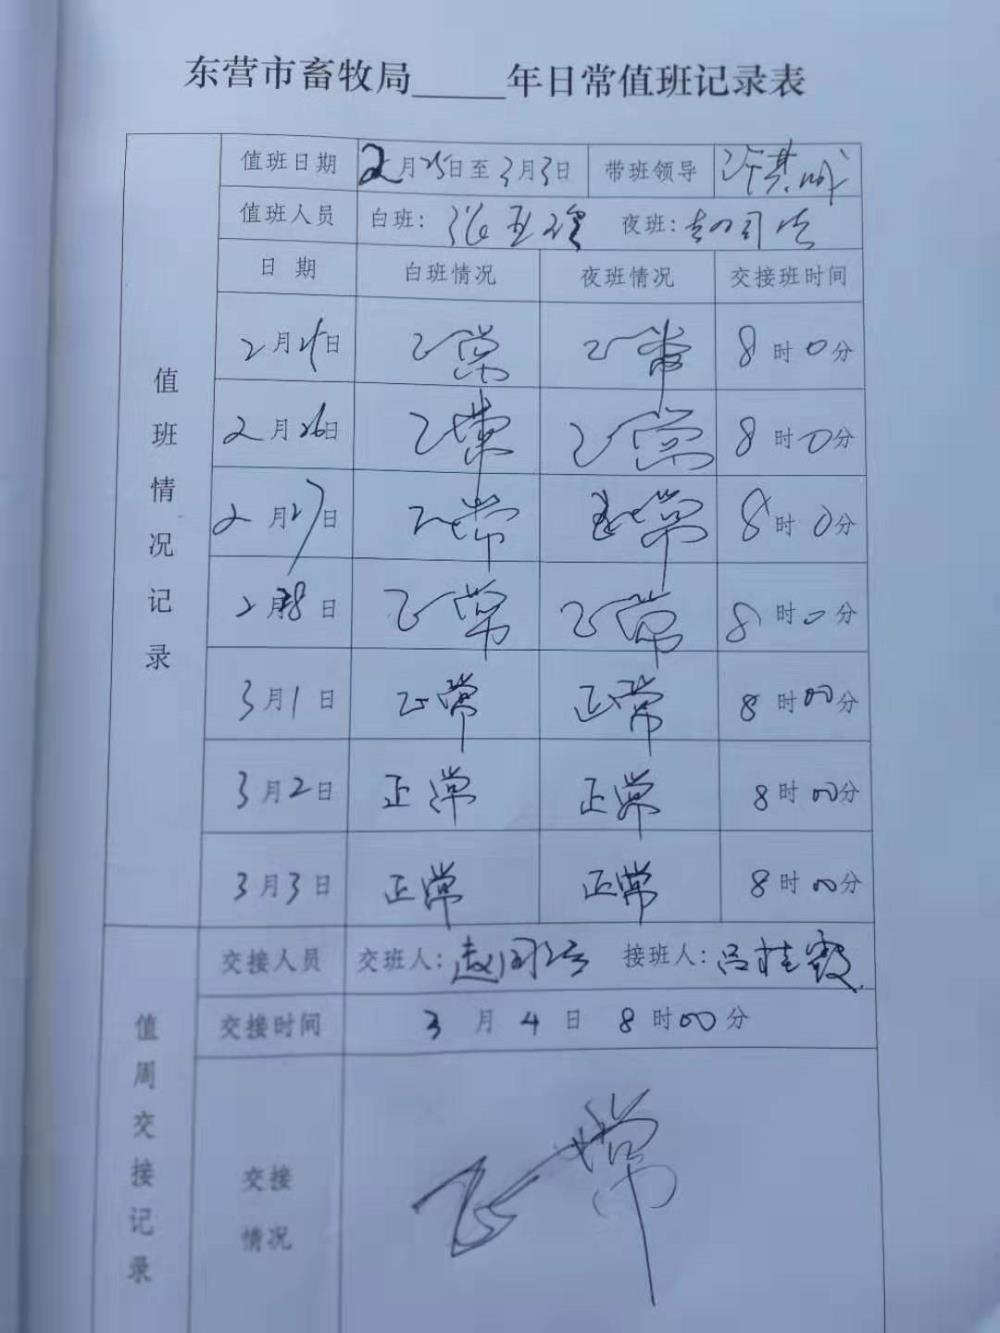 东营市畜牧局_____年日常值班记录表
值班情况记录
值班日期 2月25日至3月3日 带班领导
值班人员 白班: 夜班:
日期 白班情况 夜班情况 交接班时间
2月25日 正常 正常 8时0分
2月26日 正常 正常 8时0分
2月27日 正常 正常 8时0分
2月28日 正常 正常 8时0分
3月1日 正常 正常 8时00分
3月2日 正常 正常 8时00分
3月3日 正常 正常 8时00分
值周交接记录
交接人员 交班人: 接班人:吕桂霞
交接时间 3月4日8时00分
交接情况 正常